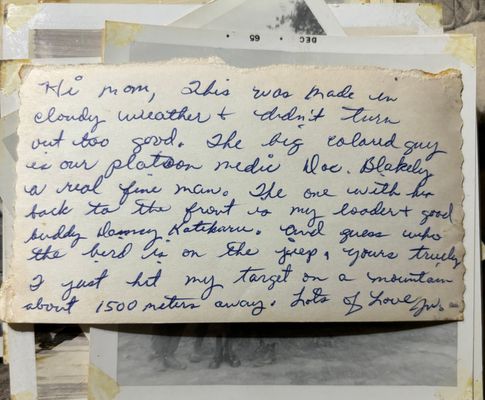 DEC . 65
Hi mom, This was made in
cloudy weather & didn't turn
out too good. The big colored guy
is our platoon medic Doc. Blakely
a real fine man. The one with his
back to the front is my loader & good
buddy Katikaru. and guess who
the bird is on the jeep, yours truely
I just hit my target on a mountain
about 1500 meters away. Lots of Love Jr.